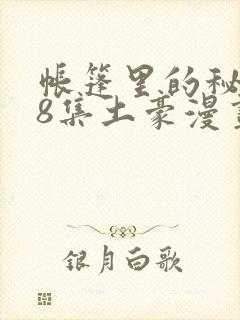 帐篷里的秘
8集土豪漫
银月白歌